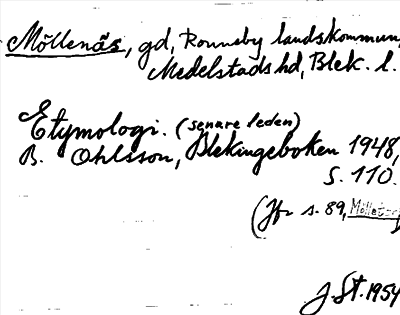 Möllenäs, gd, Ronneby landskommun,
Medelstads hd, Blek. l.
Etymologi. (senare leden)
B. Ohlsson, Blekingeboken 1948,
s. 110.
(Jfr s. 89,
J. St. 1954